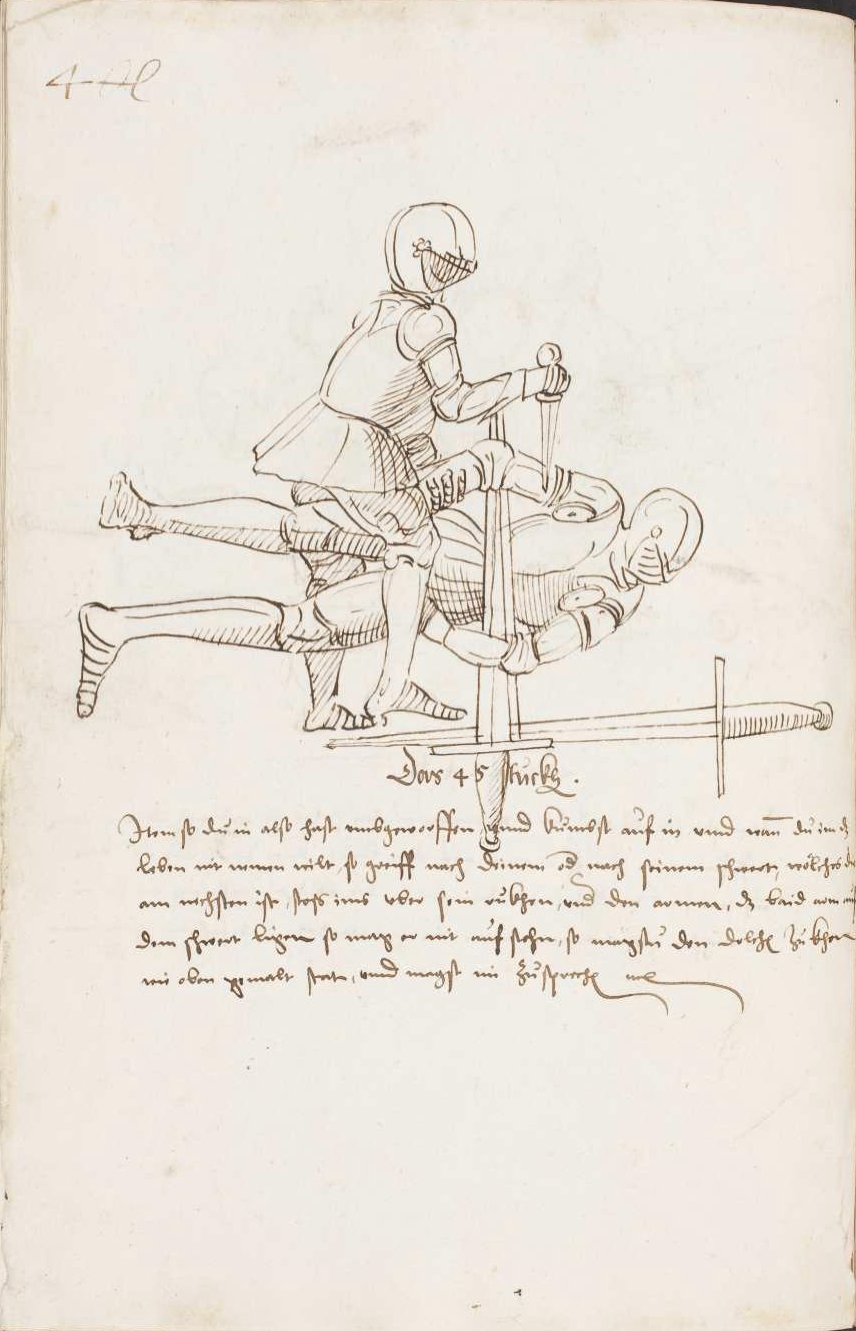 Das 45 stuckh.
Item so du in also hast umbgeworffen und kumbst auf in und wan̄ du im dz
leben nit nemen wilt, so greiff nach deinem od nach seinem schwert, wölches dir
am nechsten ist, stoss ims uber sein rukhen, und den armen, dz baid arm auf
dem schwert ligen so mag er nit auf stehn, so magstu den dolchen zukhen
wie oben gemalt stat, und magst im zusprechen